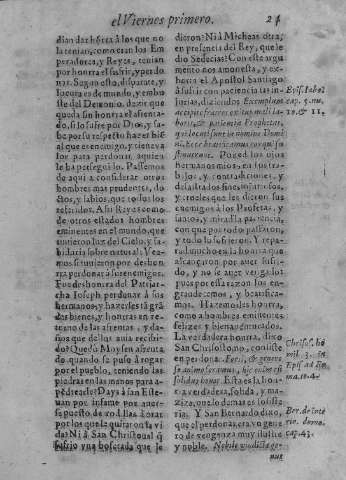 el Viernes primero. 24
dian dar hõra à los que no
la tenian, como eran los Em
peradores, y Reyes, tenian
por honra el sufrir, y perdo-
nar. Segun esto, disparate, y
locura es de mundo, y embu
ste del Demonio, dezir que
queda sin honra el afrenta-
do, si lo sufre por Dios, y sa-
be por su respecto hazer biẽ
al que es enemigo, y tienevа
lor para perdonar a quien
le ha perseguido. Passemos
de aqui à considerar otros
hombres mas prudentes, do
ctos, y sabios, que todos los
referidos. Assi Reyes como
de otros estados hombres
eminentes en el mundo, que
tuvieron luz del Cielo, y sa-
biduria sobre natural: Vea-
mos si tuvieron por deshon
ra perdonar à sus enemigos.
Fue deshonra del Patriar-
cha Ioseph perdonar à sus
hermanos, y hazerles tã grã
des bienes, y honras en re-
torno de las afrentas, y da-
ños que de ellos avia recibi-
do? Quedò Moysen afrenta
do quando se puso à rogar
por el pueblo, teniendo las
piedras en las manos para a-
pedrearle? Davs à san Este-
van por infame por aver-
se puesto de rodillas à orar
por los que le quitaron la vi
da? Ni à San Christoual q̃
sufrio vna bofetada que le
dieron? Ni à Micheas otra,
en presencia del Rey, que le
dio Sedecias? Con este argu
mento nos amonesta, y ex-
horta el Apostol Santiago
à sufrir con paciencia las in-
jurias, diziendo: Exemplum
accipite fratres exitus mali la-
boris, & patientiæ Prophetas,
qui locuti sunt in nomine Domi
ni. Ecce beatificamus eos qui su
stinuerunt. Poned los ojos
hermanos mios, en los tra-
bajos, y contradiciones, y
desastrados fines, injustos,
y crueles que les dieron sus
enemigos à los Profetas, y
santos, y mirad la paciencia,
con que por todo passaron,
y todo lo sufrieron. Y repa-
rad mucho en la honra que
alcançaron por aver sufri-
do, y no se aver vengado:
pues por essa razon los en-
grandecemos, y beatifica-
mos. Hazemosles honra,
como à hombres eminentes
felizes y bienaventurados.
La verdadera honra, dixo
San Chrisostomo, consiste
en perdonar.
Esta es la hon-
ra verdadera, solida, y ma-
ziza, que lo demas es losu-
ria. Y San Bernardo dixo,
que el perdonar, era vn gene
ro de vengança muy ilustre
y noble. Nobile vindictæ ge-
nus
Epis. Iabol
cap. 5. nu.
10. & 11.
Chrisos. ho
mil. 3. in
Epis. ad
Ber. de inte
rio. domo.
cap. 43.